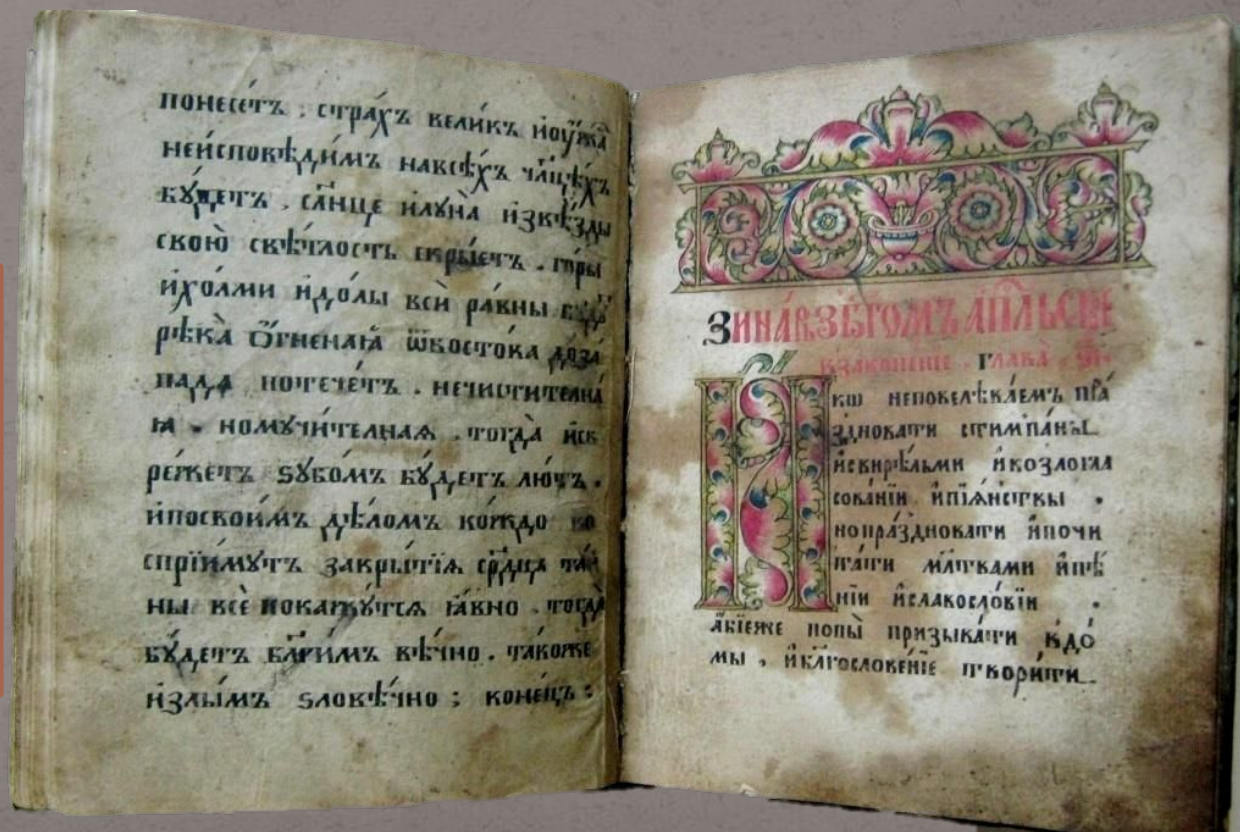 понесе́тъ . стра́хъ вели́къ и҆ оу҆́жа
неи҆сповѣ́дим̾ъ навсѣ́хъ чл҃цѣ́хъ
бу́детъ . сл҃нце илуна̀ и҆звѣ́зды
свою̀ свѣ́тлость скры́етъ . го́ры
и҆хо́лми и҆до́лы всѝ ра́вны
рѣка̀ ѻ҆́гненаѧ ѿвостока доза́
пада потече́тъ . нечистителна́
ѧ . номучи́телнаѧ . тогда̀ и҆ск
ре́жетъ ѕубо́мъ бу́детъ лю́тъ .
и҆посвои́мъ дѣ́ломъ ко́ждо во
спрїи́мутъ закры́тїѧ ср҃дца та́й
ны всѐ покажутсѧ ꙗ҆́вно . тогда̀
бу́детъ бл҃ги́мъ вѣ́чно . та́коже
и҆злы́мъ ѕловѣ́чно ; коне́цъ :
взаконенїе . глава̀
ꙗкѡ неповелѣва́емъ пра́
здновати стимпа́ны
и҆свирѣ́льми и҆козлогла
сова́нїи и҆пїѧ́нствы .
нопра́здновати и҆почи
та́ти мл҃твами и҆пѣ́
нїи и҆славосло́вїи .
а҆́бїеже попы̀ призыва́ти вдо́
мы , и҆бл҃гослове́нїе твори́ти